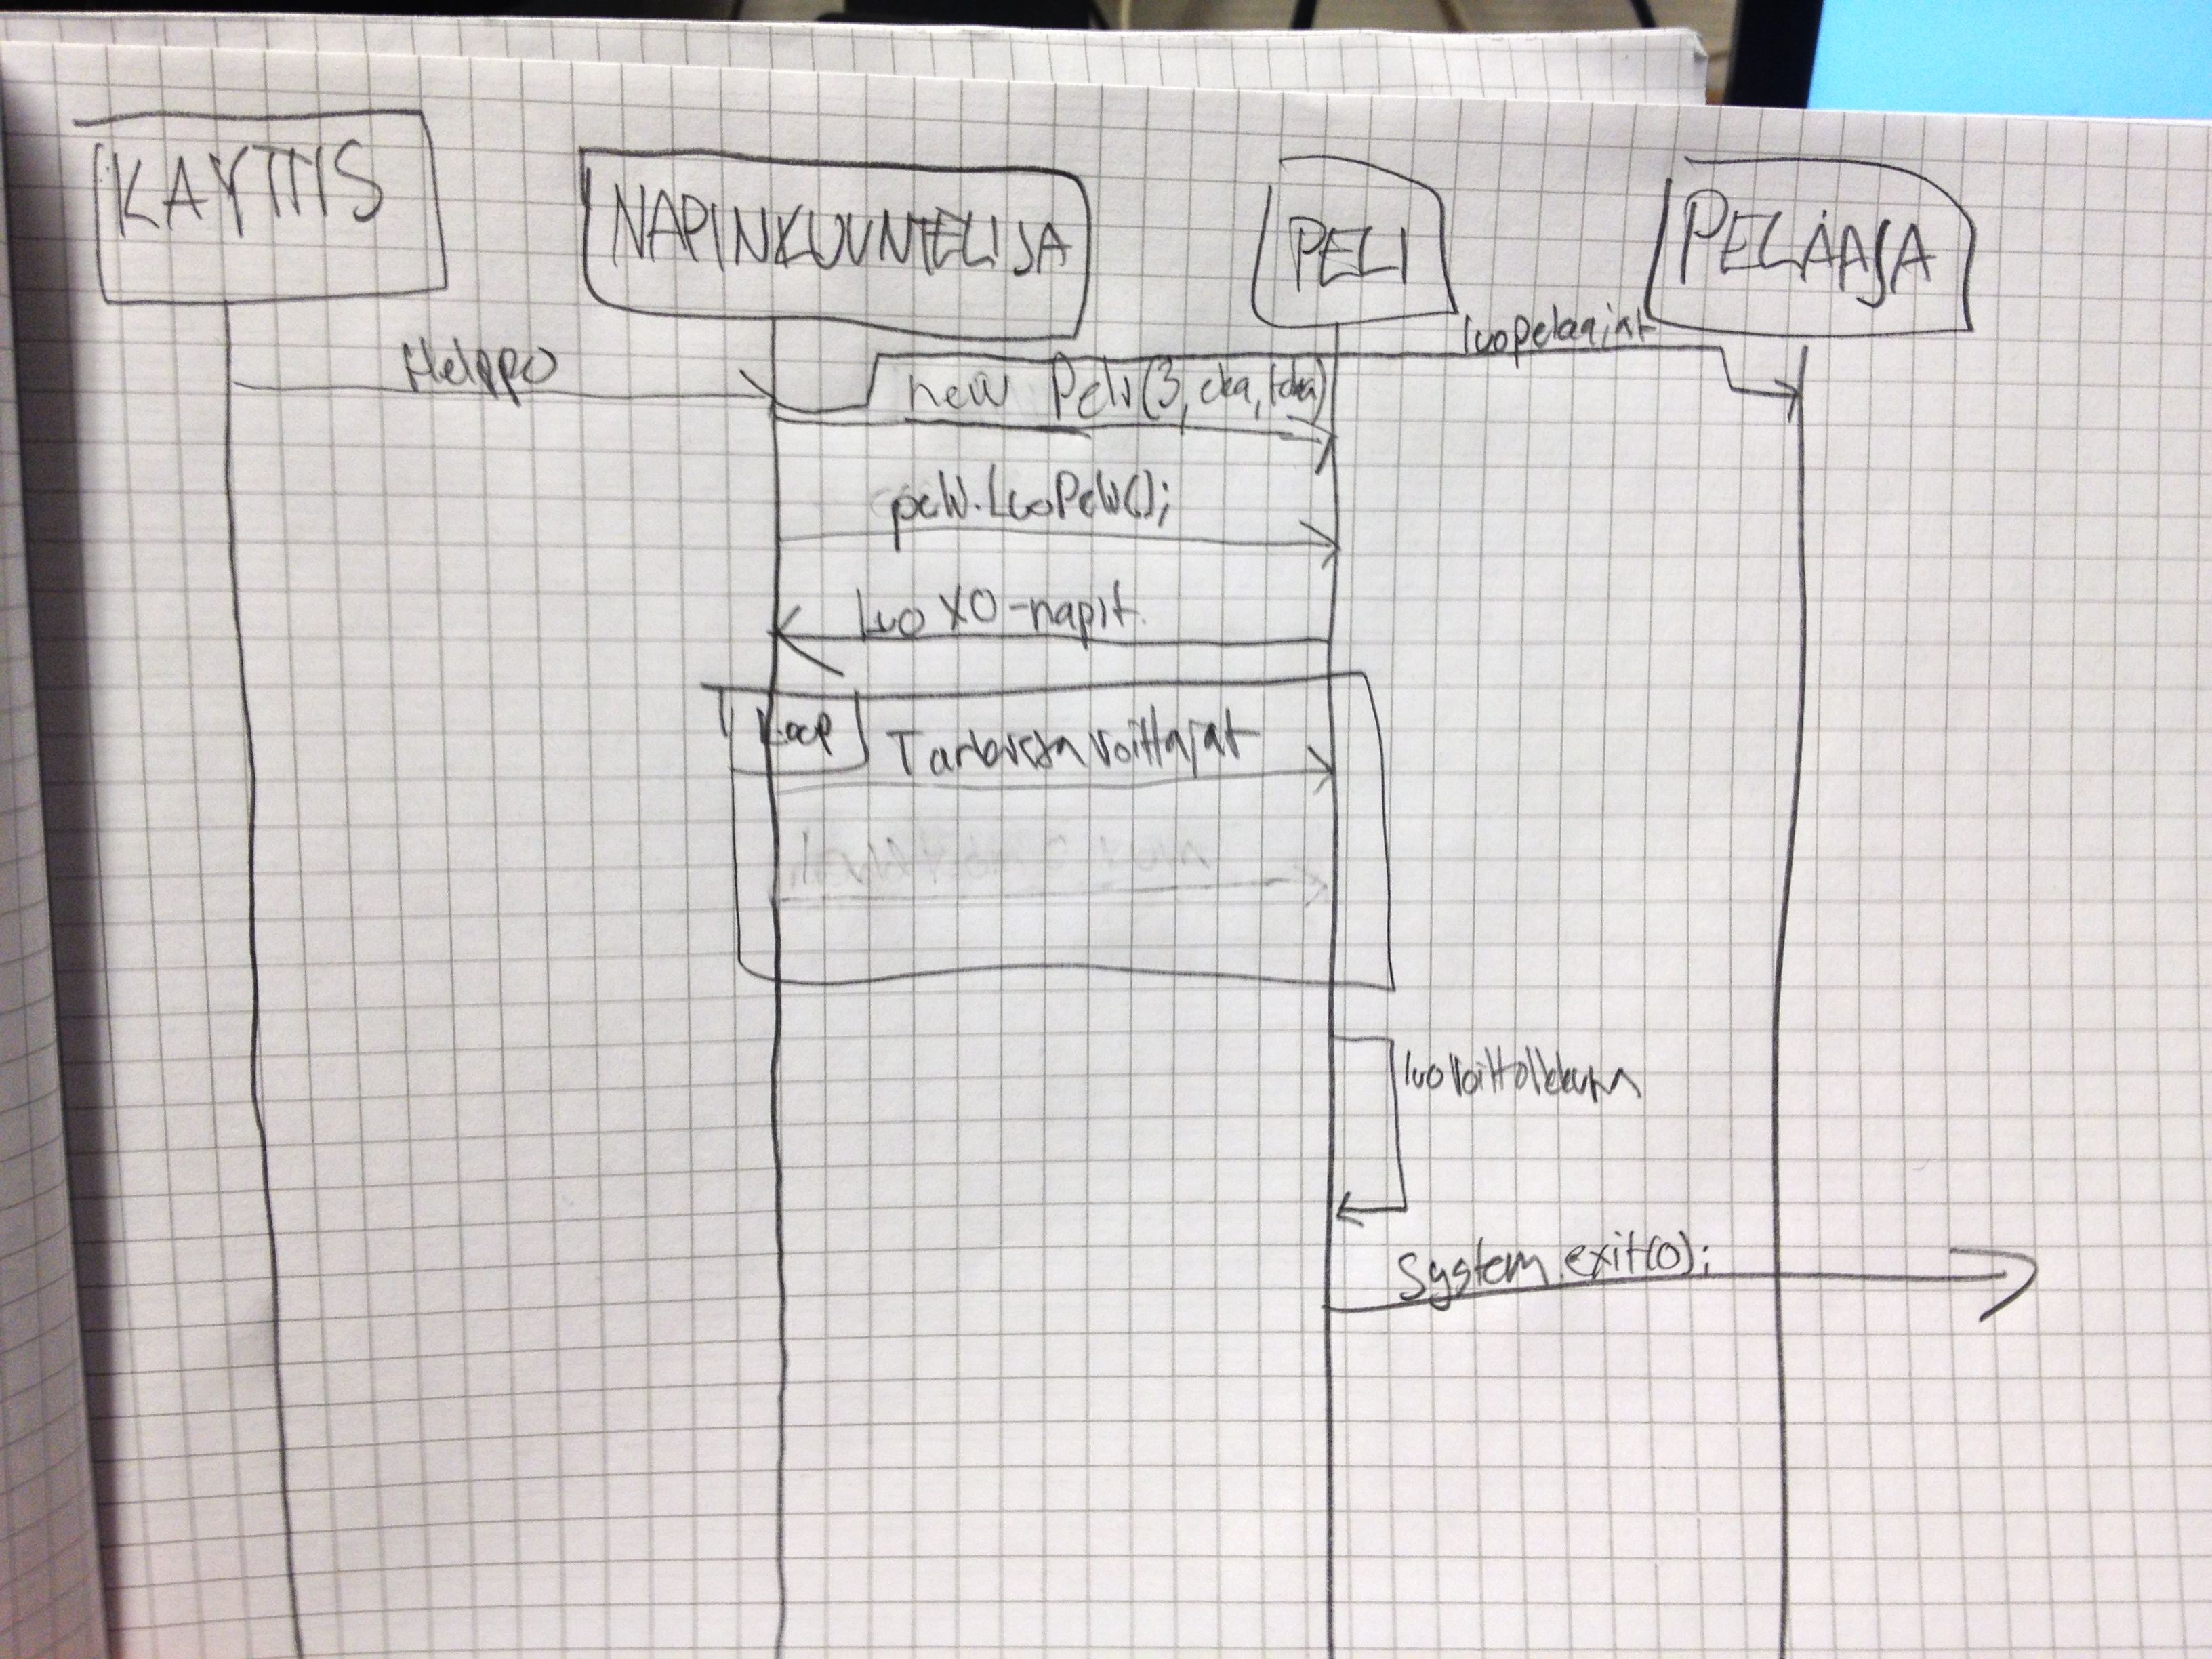 KÄYTTIS
NAPINKUUNTELIJA
PELI
PELAAJA
luoPelaajat
Helppo
new Peli(3, eka, toka)
peli.LuoPeli();
Luo XO-napit.
Loop
Tarkista voittajat
luoVoittoIkkuna
System.exit(0);